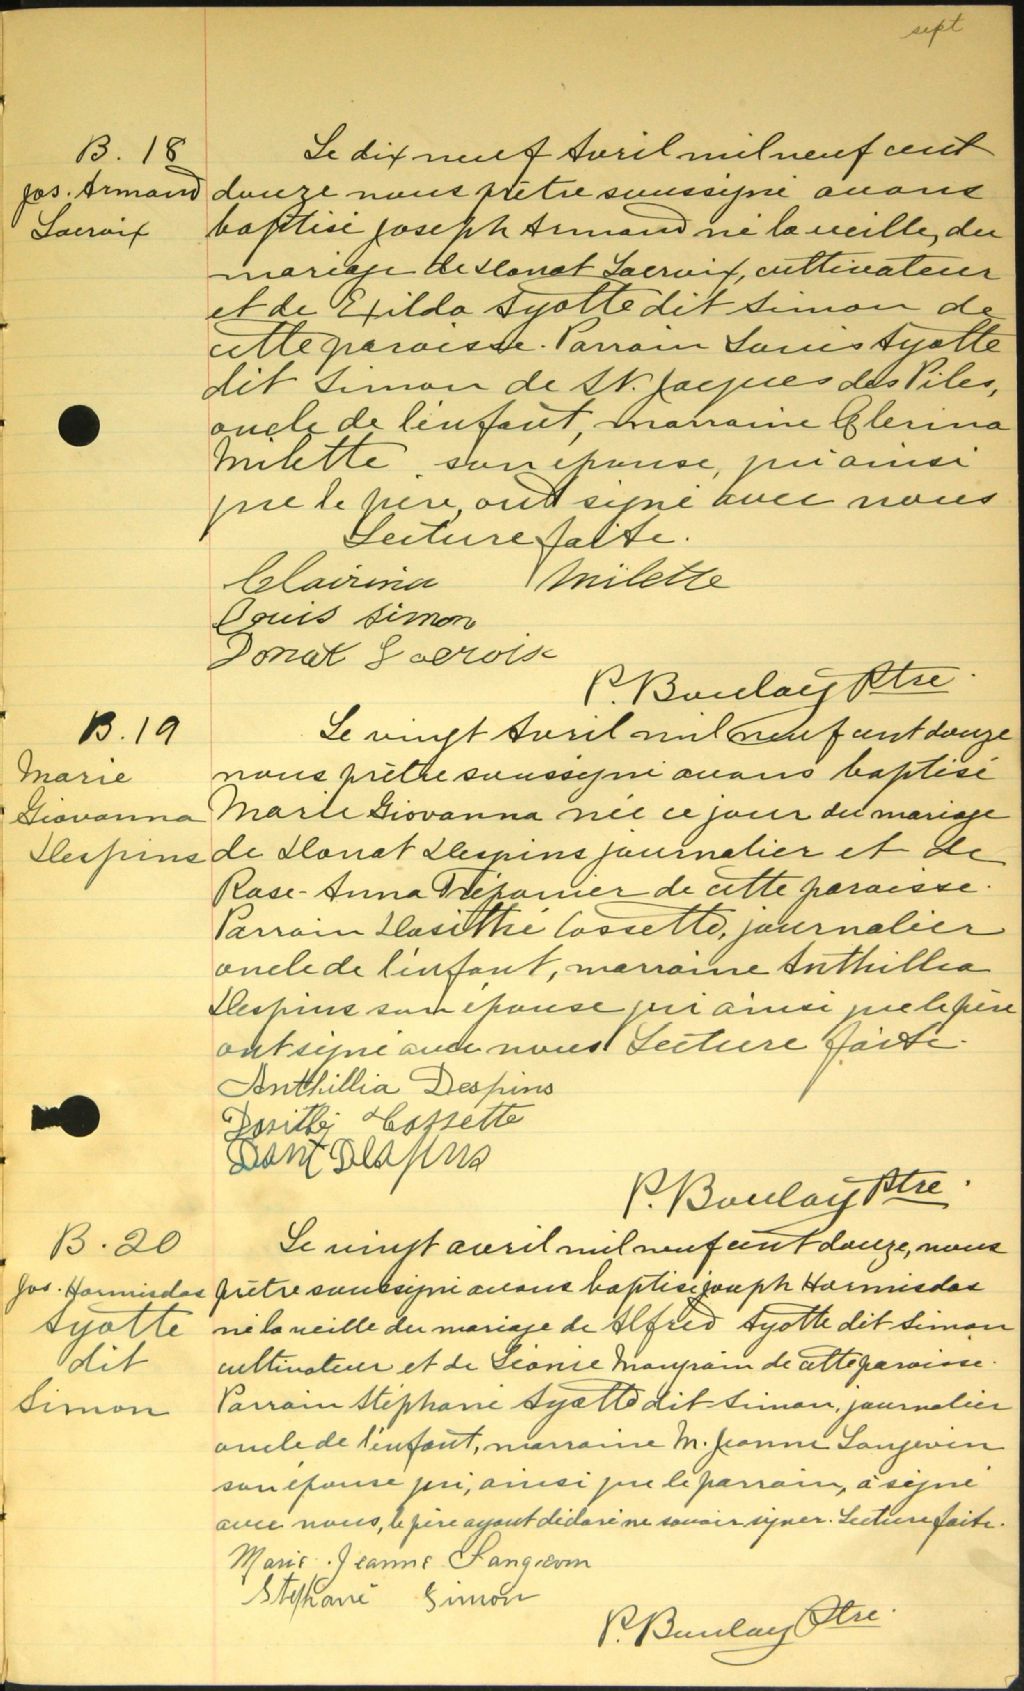 sept
B. 18
Jos. Armand
Lacroix
Le dix neuf Avril mil neuf cent
douze nous prêtre soussigné avons
baptisé Joseph Armand né la veille, du
mariage de Donat Lacroix, cultivateur
et de Exilda Ayotte dit Simon de
cette paroisse. Parrain Louis Ayotte
dit Simon de St. Jacques des Piles,
oncle de l'enfant, marraine Clerina
Milette son épouse, qui ainsi
que le père, ont signé avec nous
Lecture faite.
Clairina Milette
Louis Simon
Donat Lacroix
P. Boulay Ptre.
B. 19
Marie
Giovanna
Despins
Le vingt Avril mil neuf cent douze
nous prêtre soussigné avons baptisé
Marie Giovanna née ce jour du mariage
de Donat Despins journalier et de
Rose-Anna Trépanier de cette paroisse.
Parrain Dosithé Cossette, journalier
oncle de l'enfant, marraine Anthillia
Despins son épouse qui ainsi que le père
ont signé avec nous Lecture faite.
Anthillia Despins
Dosithé Cossette
Dont Despins
P. Boulay Ptre.
B. 20
Jos. Hormisdas
Ayotte
dit
Simon
Le vingt avril mil neuf cent douze, nous
prêtre soussigné avons baptisé Joseph Hormisdas
né la veille du mariage de Alfred Ayotte dit Simon
cultivateur et de Léonie Maugrain de cette paroisse.
Parrain Stéphane Ayotte dit Simon, journalier
oncle de l'enfant, marraine M. Jeanne Langevin
son épouse qui, ainsi que le parrain, a signé
avec nous, le père ayant déclaré ne savoir signer. Lecture faite.
Marie. Jeanne Langevin
Stephane Simon
P. Boulay Ptre.